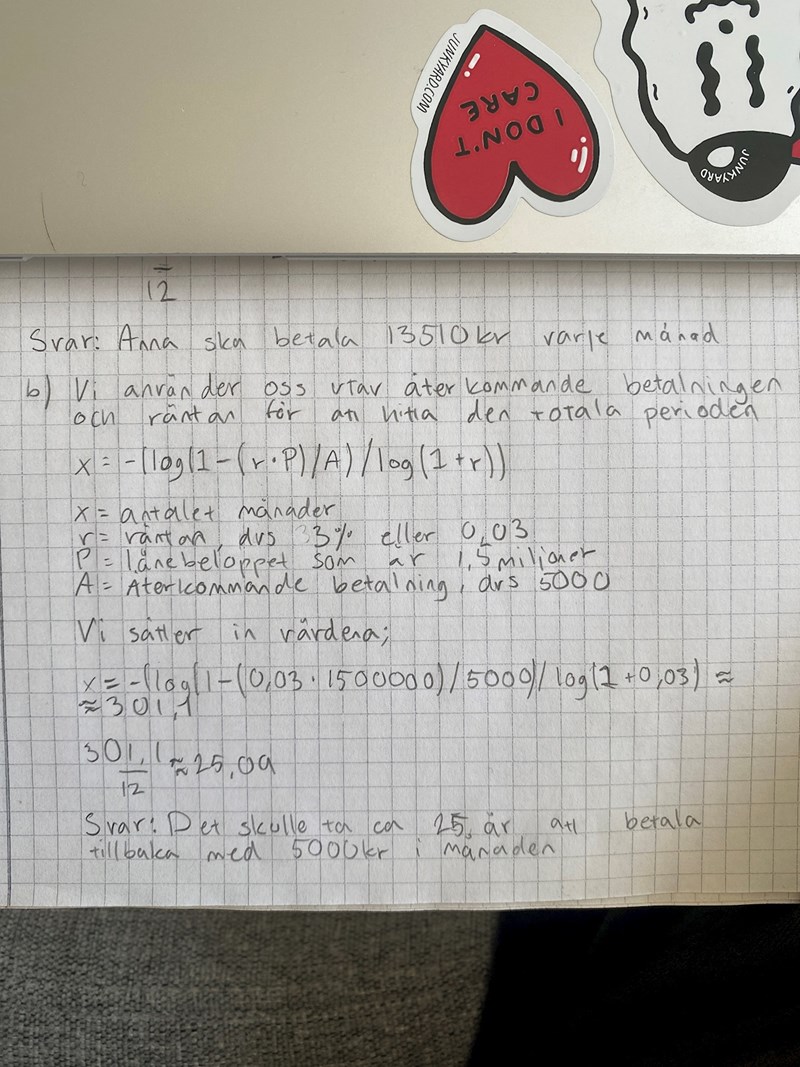 JUNKYARD.COM
I DON'T
CARE
JUNKYARD
12
Svar: Anna ska betala 13510kr varje månad
b) Vi använder oss utav återkommande betalningen
och räntan för att hitta den totala perioden
x = -(log(1-(r·P)/A)/log(1+r))
x = antalet månader
r = räntan, dvs 3% eller 0,03
P = lånebeloppet som är 1,5 miljoner
A = Återkommande betalning, dvs 5000
Vi sätter in värdena;
x = -(log(1-(0,03·1500000)/5000)/log(1+0,03) ≈
≈ 301,1
301,1
12
≈ 25,09
Svar: Det skulle ta ca 25 år att betala
tillbaka med 5000kr i månaden